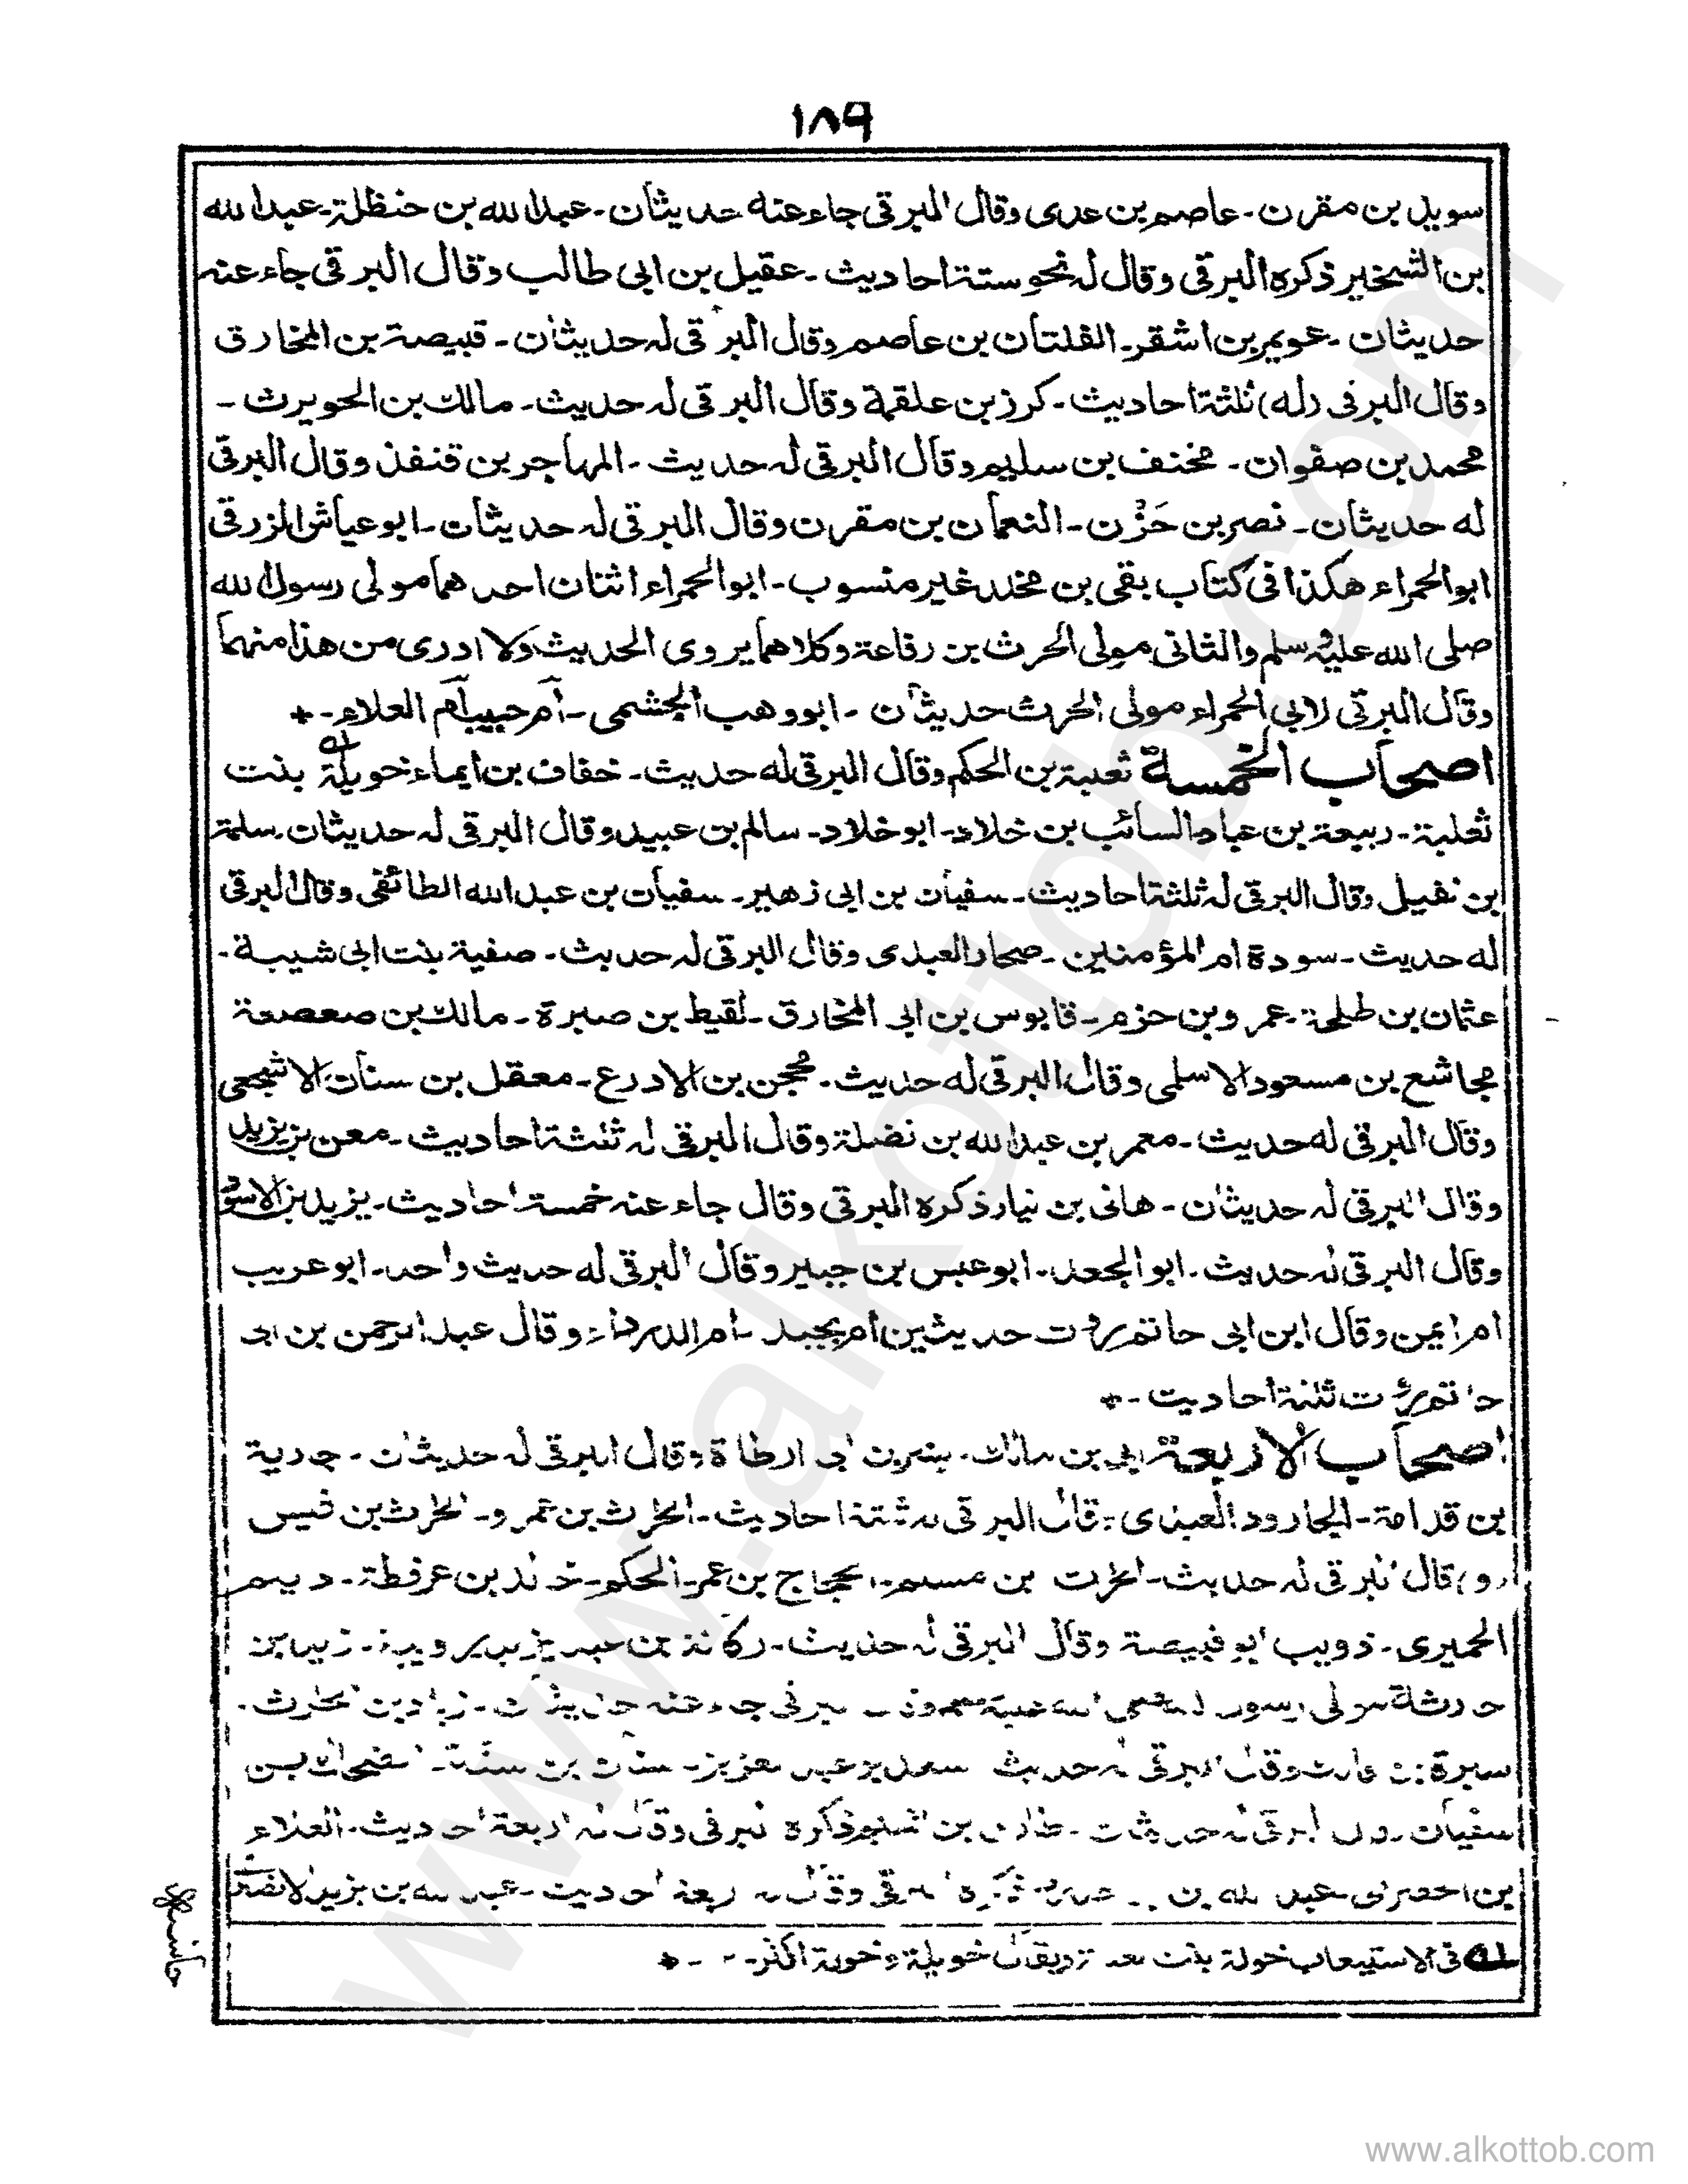 ١٨٩
سويد بن مقرن - عاصم بن عدى وقال البرقى جاء عنه حديثان - عبدالله بن حنظلة - عبدالله
بن الشخير ذكره البرقى وقال له نحو ستة احاديث - عقيل بن ابى طالب وقال البرقى جاء عنه
حديثان - عويمر بن اشقر - الفلتان بن عاصم وقال البرقى له حديثان - قبيصة بن المخارق
وقال البرقى (له) ثلثة احاديث - كرز بن علقمة وقال البرقى له حديث - مالك بن الحويرث -
محمد بن صفوان - مخنف بن سليم وقال البرقى له حديث - المهاجر بن قنفذ وقال البرقى
له حديثان - نصر بن حَزْن - النعمان بن مقرن وقال البرقى له حديثان - ابو عياش الزرقى
ابو الحمراء هكذا فى كتاب بقى بن مخلد غير منسوب - ابو الحمراء اثنان احدهما مولى رسول الله
صلى الله عليه وسلم والثانى مولى الحرث بن رفاعة وكلاهما يروى الحديث ولا ادرى من هذا منهما
وقال البرقى لابى الحمراء مولى الحرث حديثان - ابو وهب الجشمى - أم حبيب أم العلاء - *
اصحاب الخمسة ثعلبة بن الحكم وقال البرقى له حديث - خفاف بن ايماء خويلة بنت
ثعلبة - ربيعة بن عباد السائب بن خلاد - ابو خلاد - سالم بن عبيد وقال البرقى له حديثان - سلمة
بن نفيل وقال البرقى له ثلثة احاديث - سفيان بن ابى زهير - سفيان بن عبد الله الطائفى وقال البرقى
له حديث - سودة ام المؤمنين - صحار العبدى وقال البرقى له حديث - صفية بنت ابى شيبة -
عثمان بن طلحة - عمرو بن حزم - قابوس بن ابى المخارق - لقيط بن صبرة - مالك بن صعصعة
مجاشع بن مسعود الاسلمى وقال البرقى له حديث - محجن بن الادرع - معقل بن سنان الاشجعى
وقال البرقى له حديث - معمر بن عبد الله بن نضلة وقال البرقى له ثلثة احاديث - معن بن يزيد
وقال البرقى له حديثان - هانى بن نيار ذكره البرقى وقال جاء عنه خمسة احاديث - يزيد بن الاسود
وقال البرقى له حديث - ابو الجعد - ابو عبس بن جبير وقال البرقى له حديث واحد - ابو عريب
ام ايمن وقال ابن ابى حاتم روت حديثين أم بجيد - أم الدرداء وقال عبد الرحمن بن ابى
حاتم روت ثلثة احاديث - *
اصحاب الاربعة ابى بن مالك - بسر بن ابى ارطاة وقال البرقى له حديثان - جارية
بن قدامة - الجارود العبدى وقال البرقى له ثلثة احاديث - الحرث بن عمرو - الحرث بن قيس
(و) قال البرقى له حديث - الحرث بن مسلم - الحجاج بن عمر - الحكم - خالد بن عرفطة - ديلم
الحميرى - ذويب ابو قبيصة وقال البرقى له حديث - ركانة بن عبد يزيد - رويبة - زيد بن
حارثة مولى رسول الله صلى الله عليه وسلم وقال البرقى جاء عنه حديثان - زياد بن الحارث -
سبرة بن فاتك وقال البرقى له حديث سعد بن عبد العزيز - سنان بن سنة - الضحاك بن
سفيان وقال البرقى له حديثان - طارق بن اشيم ذكره البرقى وقال له اربعة احاديث - العلاء
بن الحضرمى - عبد الله بن ... ذكره البرقى وقال له اربعة احاديث - عبد الله بن يزيد الانصارى
له فى الاستيعاب خولة بنت ثعلبة ويقال خويلة وخولة اكثر - *
حاشية
www.alkottob.com
www.alkottob.com